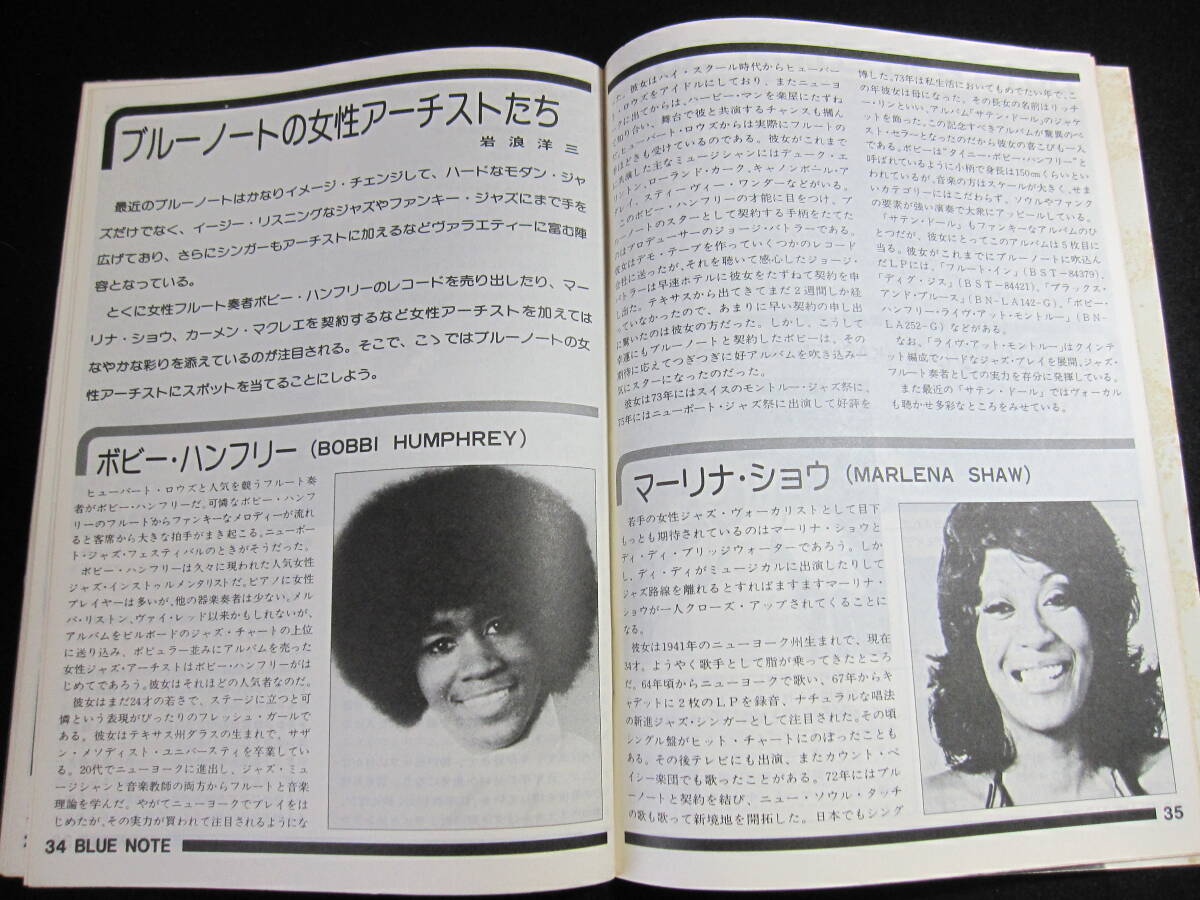 ブルーノートの女性アーチストたち
岩浪洋三
最近のブルーノートはかなりイメージ・チェンジして、ハードなモダン・ジャ
ズだけでなく、イージー・リスニングなジャズやファンキー・ジャズにまで手を
広げており、さらにシンガーもアーチストに加えるなどヴァラエティーに富む陣
容となっている。
とくに女性フルート奏者ボビー・ハンフリーのレコードを売り出したり、マー
リナ・ショウ、カーメン・マクレエを契約するなど女性アーチストを加えては
なやかな彩りを添えているのが注目される。そこで、こゝではブルーノートの女
性アーチストにスポットを当てることにしよう。
ボビー・ハンフリー(BOBBI HUMPHREY)
ヒューバート・ロウズと人気を競うフルート奏
者がボビー・ハンフリーだ。可憐なボビー・ハンフ
リーのフルートからファンキーなメロディーが流れ
ると客席から大きな拍手がまき起こる。ニューポー
ト・ジャズ・フェスティバルのときがそうだった。
ボビー・ハンフリーは久々に現われた人気女性
ジャズ・インストゥルメンタリストだ。ピアノに女性
プレイヤーは多いが、他の器楽奏者は少ない。メル
バ・リストン、ヴァイ・レッド以来かもしれないが、
アルバムをビルボードのジャズ・チャートの上位
に送り込み、ポピュラー並みにアルバムを売った
女性ジャズ・アーチストはボビー・ハンフリーがは
じめてであろう。彼女はそれほどの人気者なのだ。
彼女はまだ24才の若さで、ステージに立つと可
憐という表現がぴったりのフレッシュ・ガールで
ある。彼女はテキサス州ダラスの生まれで、サザ
ン・メソディスト・ユニバースティを卒業してい
る。20代でニューヨークに進出し、ジャズ・ミュ
ージシャンと音楽教師の両方からフルートと音楽
理論を学んだ。やがてニューヨークでプレイをは
じめたが、その実力が買われて注目されるようにな
34 BLUE NOTE
った。彼女はハイ・スクール時代からヒューバー
ト・ロウズをアイドルにしており、またニューヨ
ークに出てからは、ハービー・マンを楽屋にたずね
て知り合い、舞台で彼と共演するチャンスも掴ん
だ。ヒューバート・ロウズからは実際にフルートの
手ほどきも受けているのである。彼女がこれまで
に共演した主なミュージシャンにはデューク・エ
リントン、ローランド・カーク、キャノンボール・ア
ダレイ、スティーヴィー・ワンダーなどがいる。
このボビー・ハンフリーの才能に目をつけ、ブ
ルーノートのスターとして契約する手柄をたてた
のはプロデューサーのジョージ・バトラーである。
彼女はデモ・テープを作っていくつかのレコード
会社に送ったが、それを聴いて感心したジョージ・
バトラーは早速ホテルに彼女をたずねて契約を申
し出た。テキサスから出てきてまだ2週間しか経
っていなかったので、あまりに早い契約の申し出
に驚いたのは彼女の方だった。しかし、こうして
幸運にもブルーノートと契約したボビーは、その
期待に応えてつぎつぎに好アルバムを吹き込み一
気にスターになったのだった。
彼女は73年にはスイスのモントルー・ジャズ祭に、
75年にはニューポート・ジャズ祭に出演して好評を
博した。73年は私生活においてもめでたい年で、こ
の年彼女は母になった。その長女の名前はリッチ
ー・リンといい、アルバム「サテン・ドール」のジャケ
ットを飾った。この記念すべきアルバムが驚異のベ
スト・セラーとなったのだから彼女の喜こびも一入
である。ボビーは“タイニー・ボビー・ハンフリー”と
呼ばれているように小柄で身長は150cmくらいとい
われているが、音楽の方はスケールが大きく、せま
いカテゴリーにはこだわらず、ソウルやファンク
の要素が強い演奏で大衆にアッピールしている。
「サテン・ドール」もファンキーなアルバムのひ
とつだが、彼女にとってこのアルバムは5枚目に
当る。彼女がこれまでにブルーノートに吹込ん
だLPには、「フルート・イン」(BST-84379)、
「ディグ・ジス」(BST-84421)、「ブラックス・
アンド・ブルース」(BN-LA142-G)、「ボビー・
ハンフリー・ライヴ・アット・モントルー」(BN-
LA252-G)などがある。
なお、「ライヴ・アット・モントルー」はクインテ
ット編成でハードなジャズ・プレイを展開、ジャズ・
フルート奏者としての実力を存分に発揮している。
また最近の「サテン・ドール」ではヴォーカル
も聴かせ多彩なところをみせている。
マーリナ・ショウ(MARLENA SHAW)
若手の女性ジャズ・ヴォーカリストとして目下
もっとも期待されているのはマーリナ・ショウと
ディ・ディ・ブリッジウォーターであろう。しか
し、ディ・ディがミュージカルに出演したりして
ジャズ路線を離れるとすればますますマーリナ・
ショウが一人クローズ・アップされてくることに
なる。
彼女は1941年のニューヨーク州生まれで、現在
34才。ようやく歌手として脂が乗ってきたところ
だ。64年頃からニューヨークで歌い、67年からキ
ャデットに2枚のLPを録音、ナチュラルな唱法
の新進ジャズ・シンガーとして注目された。その頃
シングル盤がヒット・チャートにのぼったことも
ある。その後テレビにも出演、またカウント・ベ
イシー楽団でも歌ったことがある。72年にはブル
ーノートと契約を結び、ニュー・ソウル・タッチ
の歌も歌って新境地を開拓した。日本でもシング
35